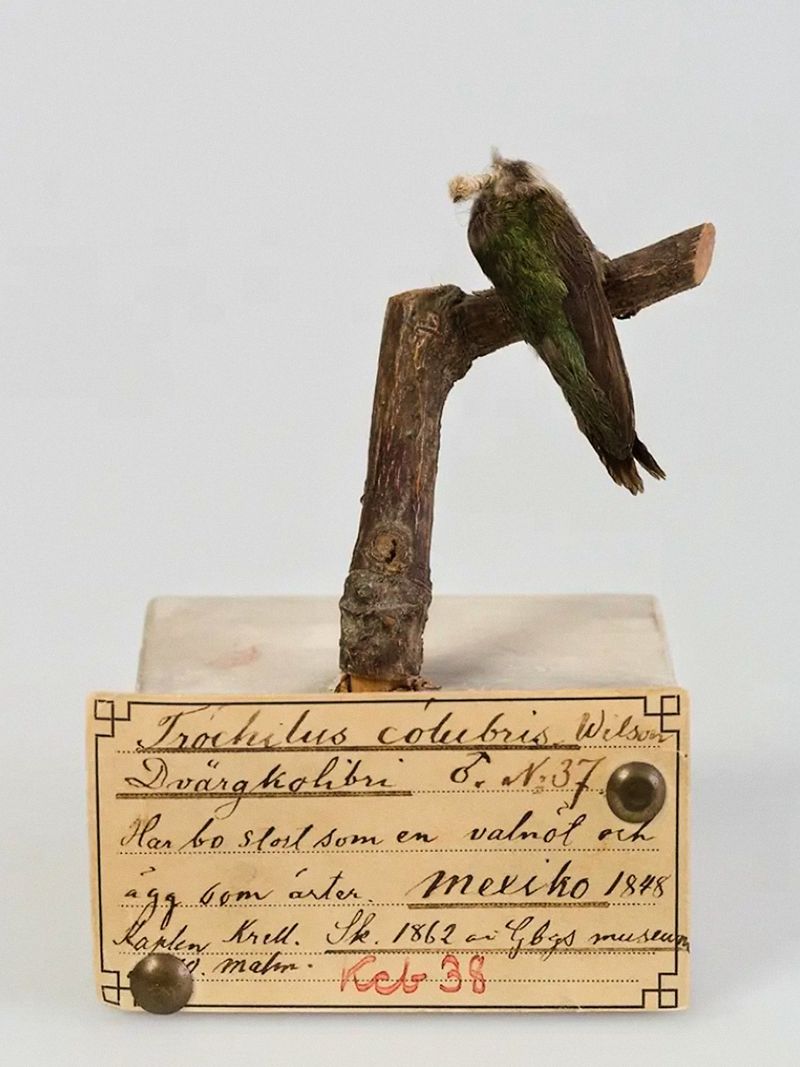 Trochilus colubris Wilson
Dvärgkolibri ♂. No 37
Har bo stort som en valnöt och
ägg som ärter. Mexiko 1848
Kapten Krell. Sk. 1862 av Gbgs museum
malm.
Kcb 38